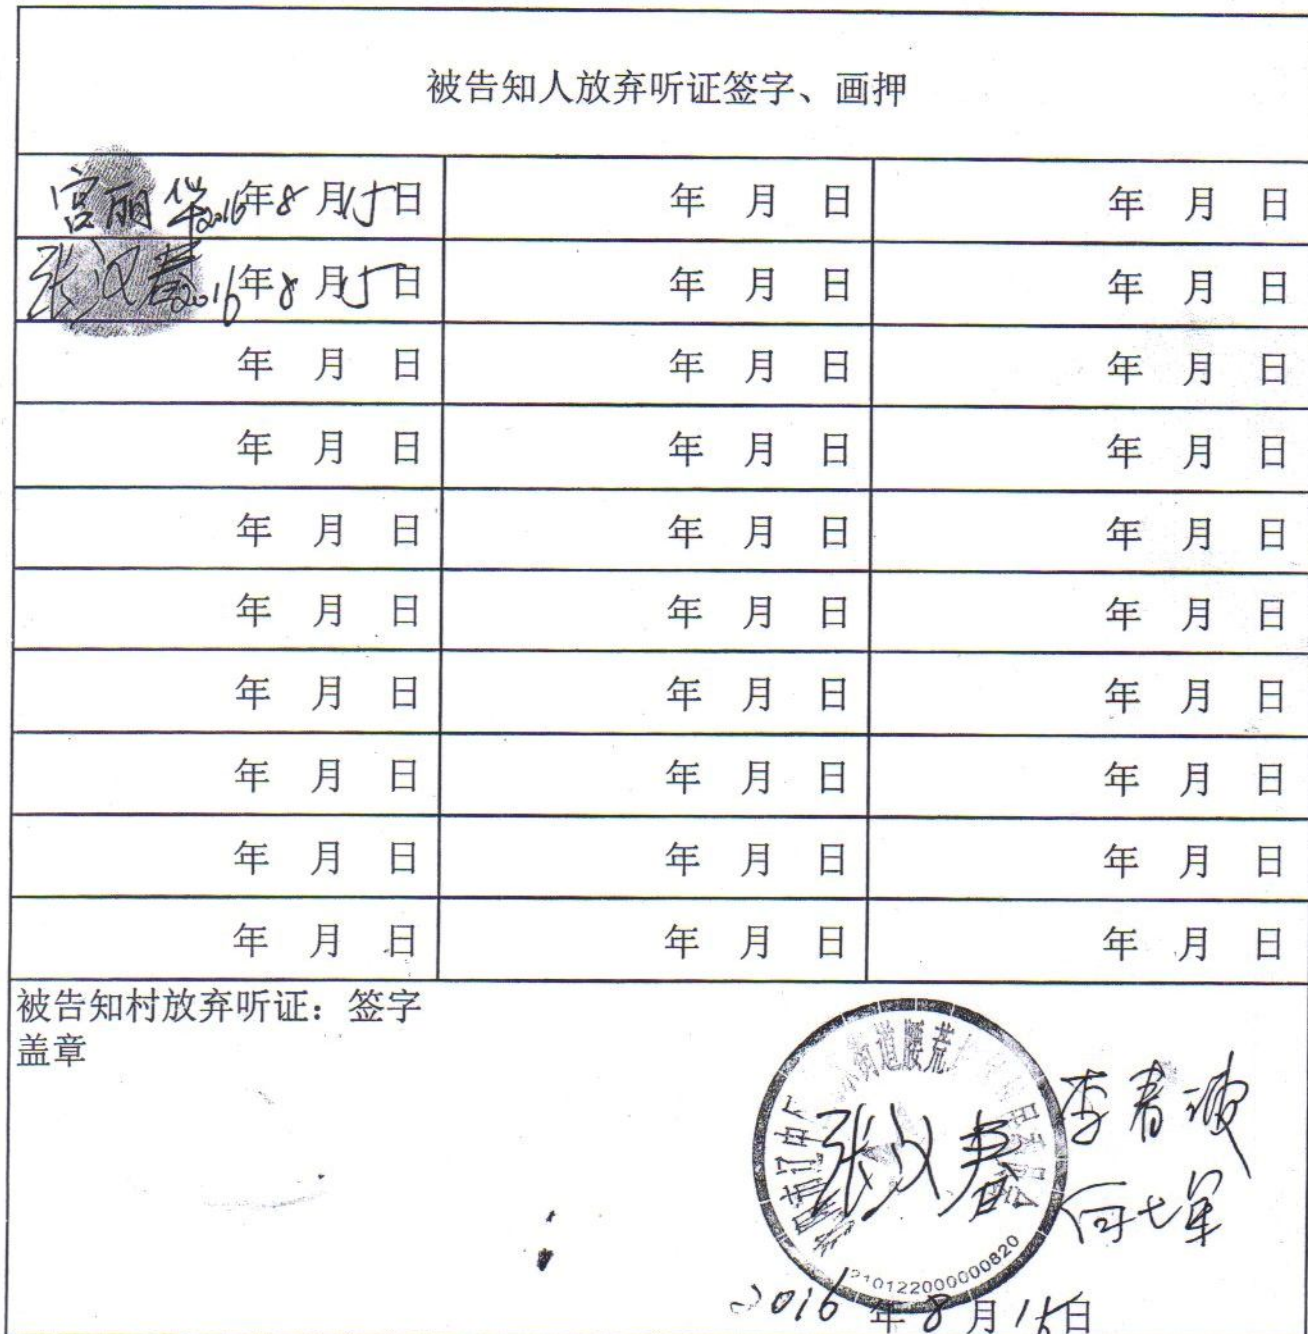 被告知人放弃听证签字、画押
宫丽华2016年8月15日 年 月 日 年 月 日
张义春2016年8月15日 年 月 日 年 月 日
年 月 日 年 月 日 年 月 日
年 月 日 年 月 日 年 月 日
年 月 日 年 月 日 年 月 日
年 月 日 年 月 日 年 月 日
年 月 日 年 月 日 年 月 日
年 月 日 年 月 日 年 月 日
年 月 日 年 月 日 年 月 日
年 月 日 年 月 日 年 月 日
被告知村放弃听证：签字
盖章
街道腰荒
张义春
李春
210122000000820
2016年8月15日